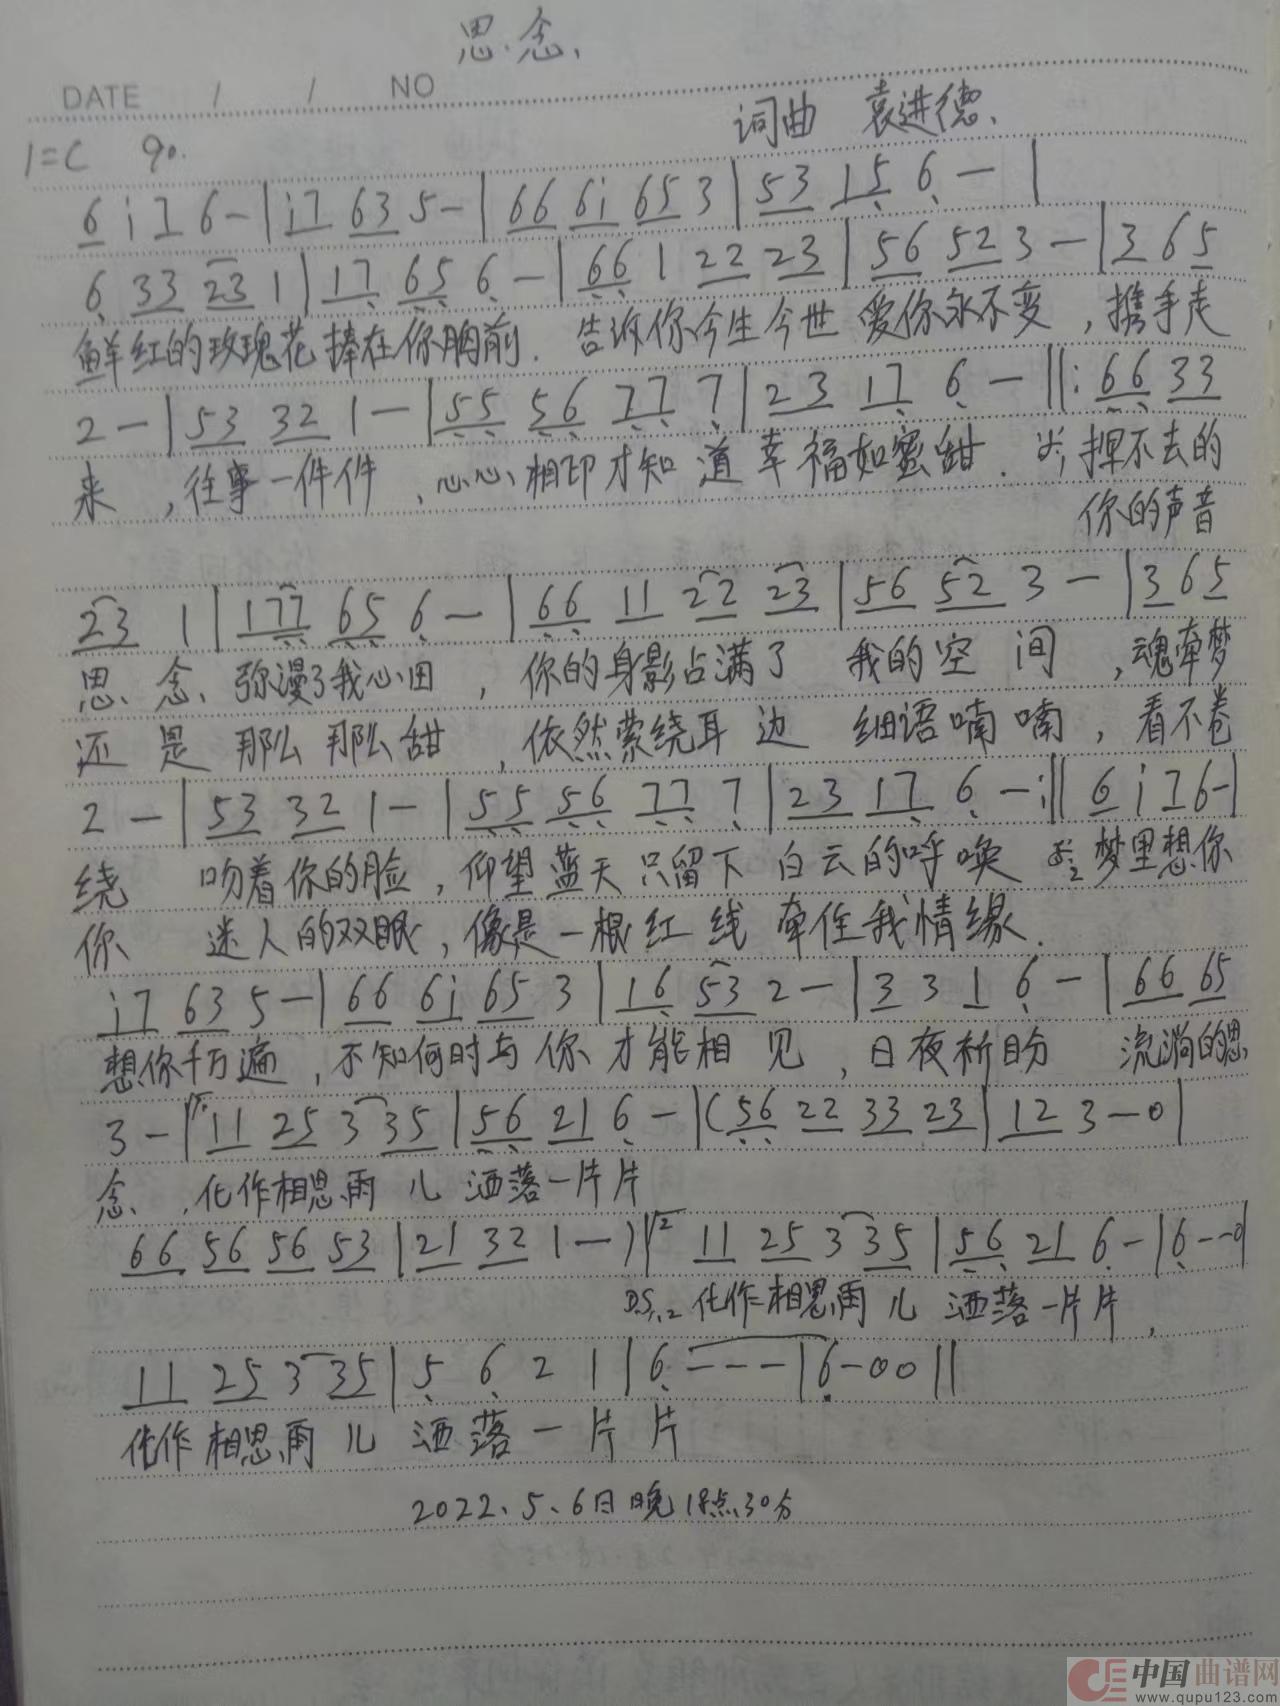 思念
DATE / / NO
词曲 袁进德
1=C 90
6 i 7 6 - | i7 63 5 - | 66 6i 65 3 | 53 15 6 - |
6 33 23 1 | 17 65 6 - | 66 1 22 23 | 56 52 3 - | 3 6 5
鲜红的玫瑰花捧在你胸前. 告诉你今生今世 爱你永不变，携手走
2 - | 53 32 1 - | 55 56 77 7 | 23 17 6 - ‖: 66 33
来，往事一件件，心心相印才知道幸福如蜜甜. 挥不去的
你的声音
23 1 | 177 65 6 - | 66 11 22 23 | 56 52 3 - | 3 6 5
思念、弥漫了我心田，你的身影占满了 我的空间，魂牵梦
还是 那么那么甜，依然萦绕耳边 细语喃喃，看不卷
2 - | 53 32 1 - | 55 56 77 7 | 23 17 6 - :‖ 6 i 7 6 - |
绕 吻着你的脸，仰望蓝天只留下 白云的呼唤 梦里想你
你 迷人的双眼，像是一根红线 牵住我情缘.
i7 63 5 - | 66 6i 65 3 | 16 53 2 - | 3 3 1 6 - | 66 65
想你千万遍，不知何时与你才能相见，日夜祈盼 流淌的思
3 - | 1. 11 25 3 35 | 56 21 6 - | (56 22 33 23 | 12 3 - 0 |
念，化作相思雨儿 洒落一片片
66 56 56 53 | 21 32 1 - ) | 2 11 25 3 35 | 56 21 6 - | 6 - - 0 |
D.S.2 化作相思雨儿 洒落一片片，
11 25 3 35 | 5 6 2 1 | 6 - - - | 6 - 0 0 ‖
化作相思雨儿 洒落一片片
2022、5、6日晚18点30分
中国曲谱网
www.qupu123.com